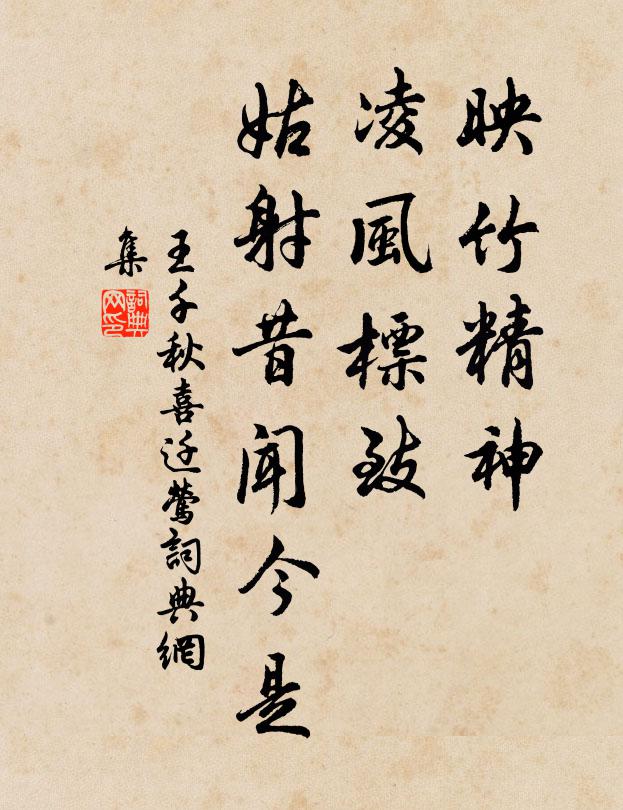 映竹精神
凌風標致
姑射昔聞今是
王千秋喜迁鶯詞典網
集
詞典网印